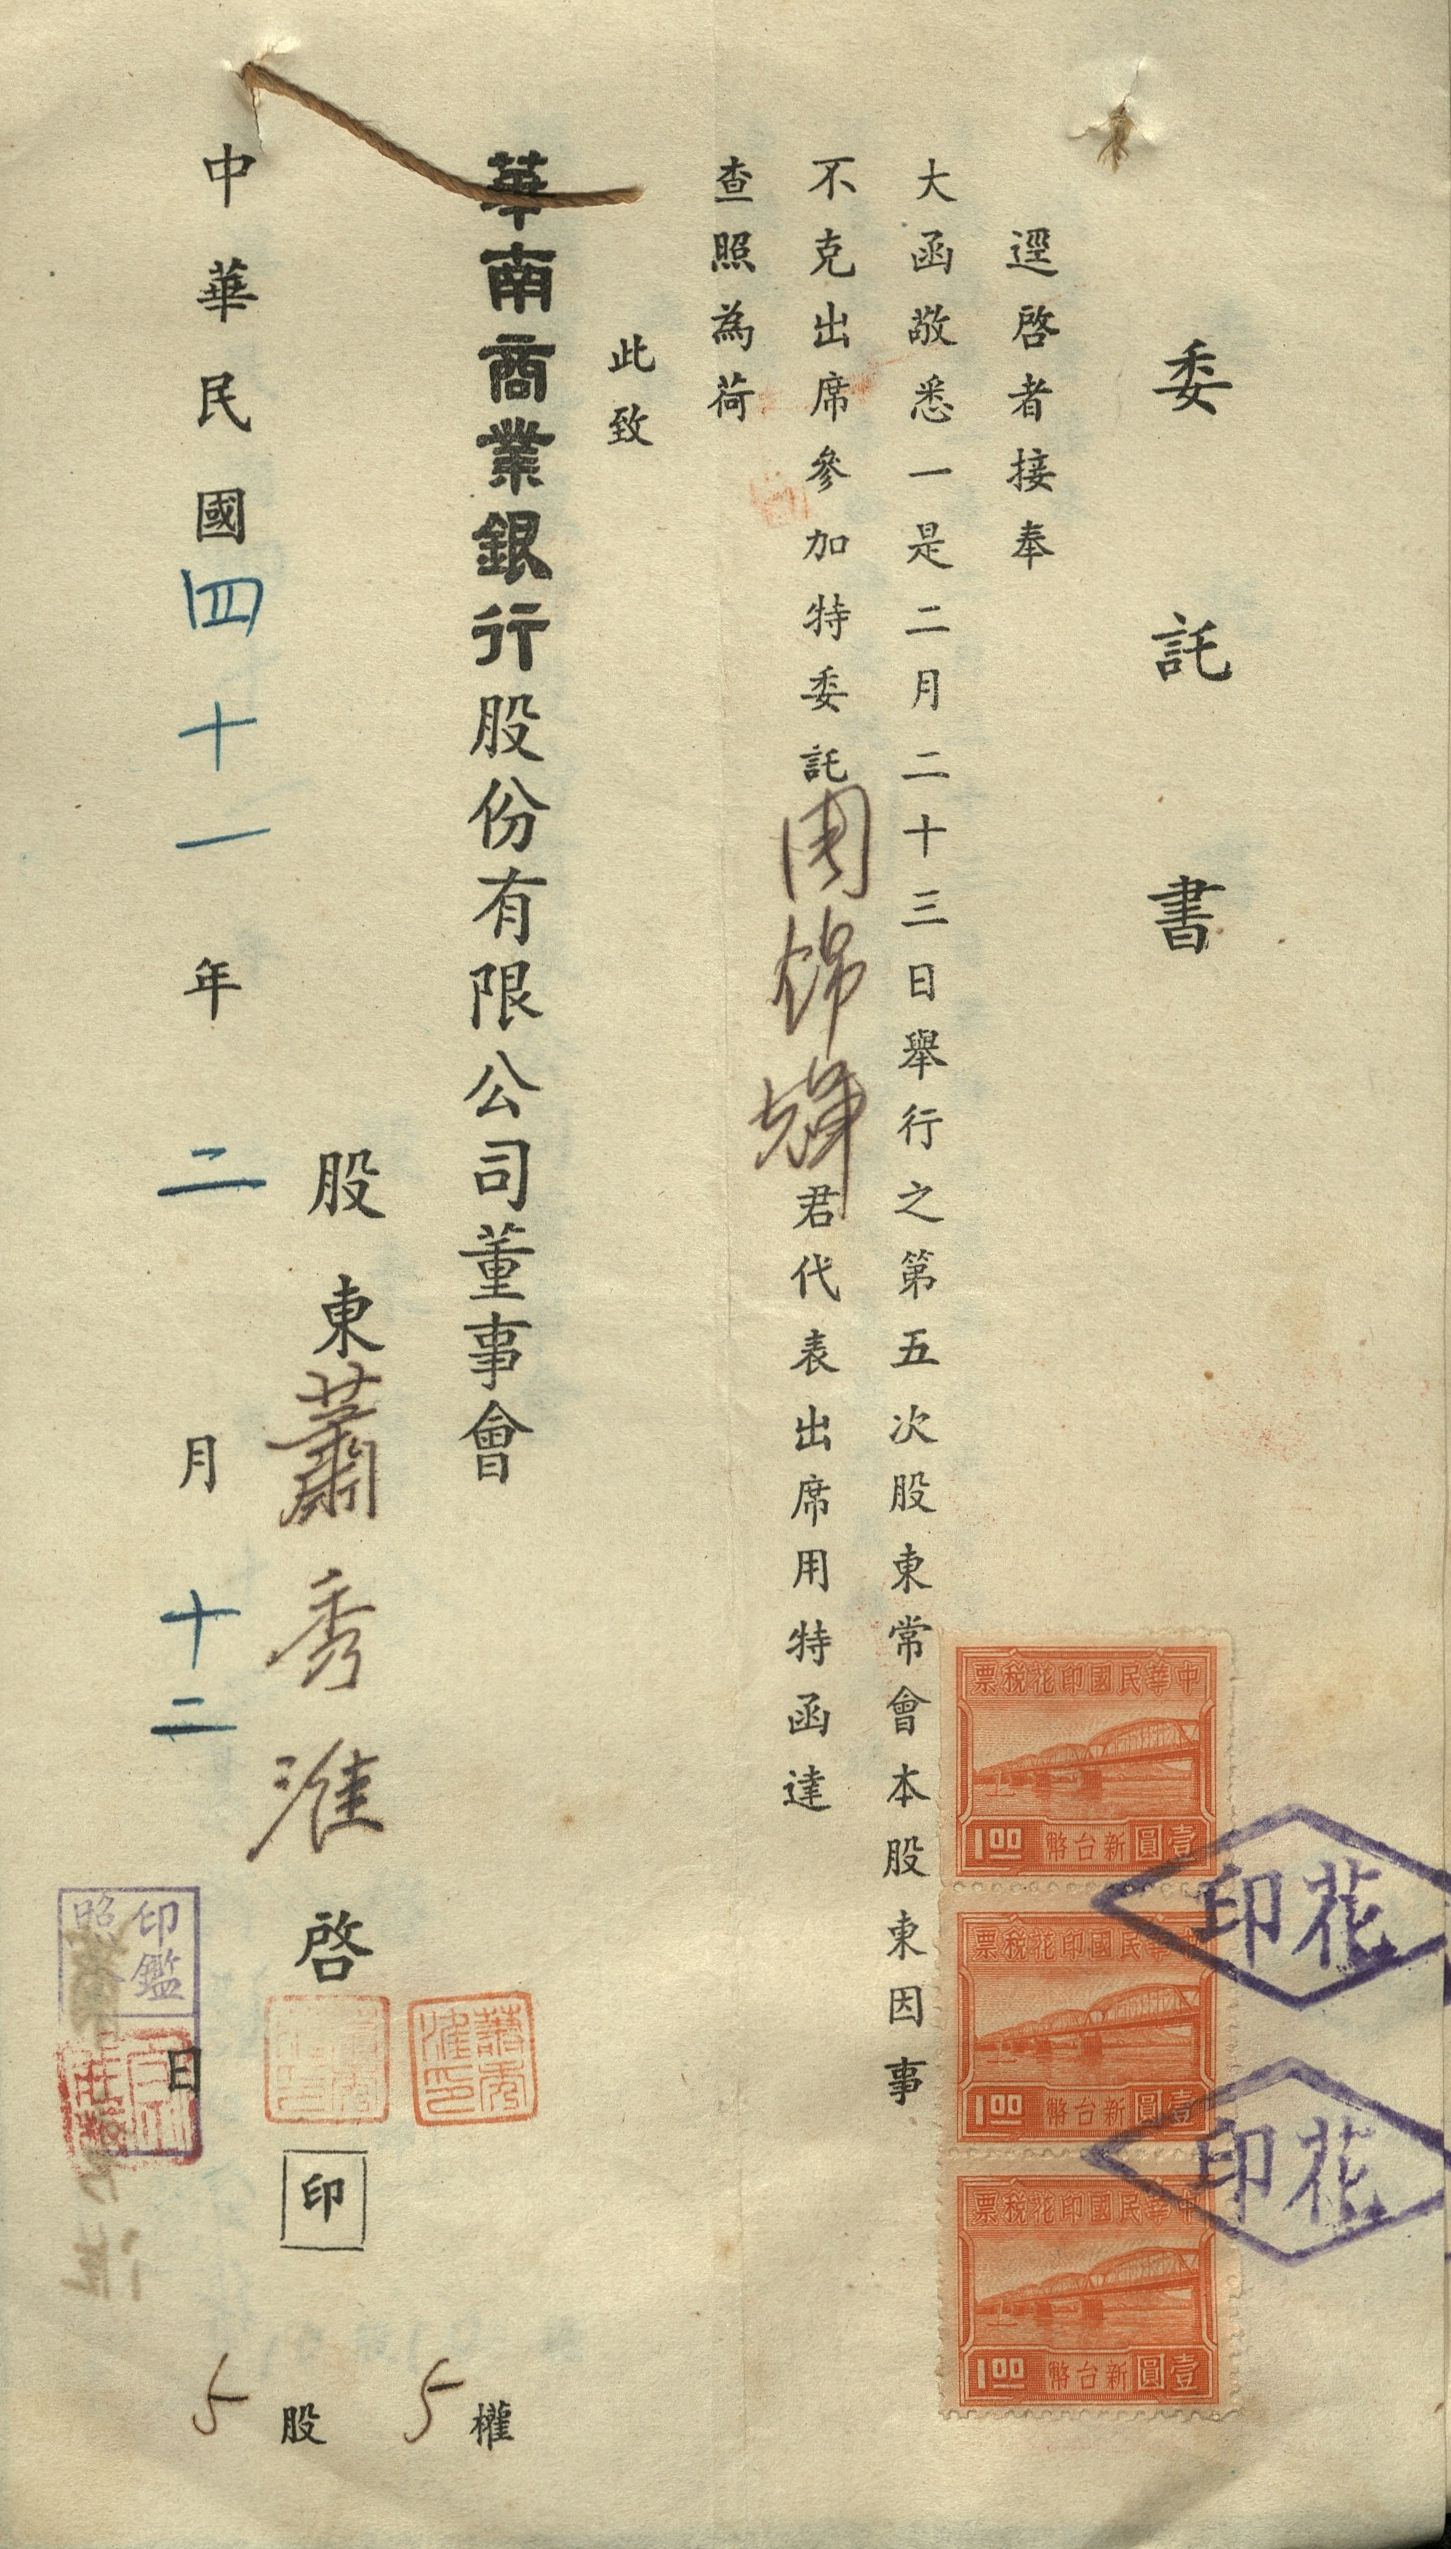 委託書
逕啓者接奉
大函敬悉一是二月二十三日舉行之第五次股東常會本股東因事
不克出席參加特委託周錦輝君代表出席用特函達
查照為荷
此致
華南商業銀行股份有限公司董事會
股東蕭秀淮啓
印
中華民國四十一年二月十二日
5權
5股
中華民國印花稅票
壹圓新台幣
1.00
中華民國印花稅票
壹圓新台幣
1.00
中華民國印花稅票
壹圓新台幣
1.00
花印
花印
蕭秀淮印
印鑑